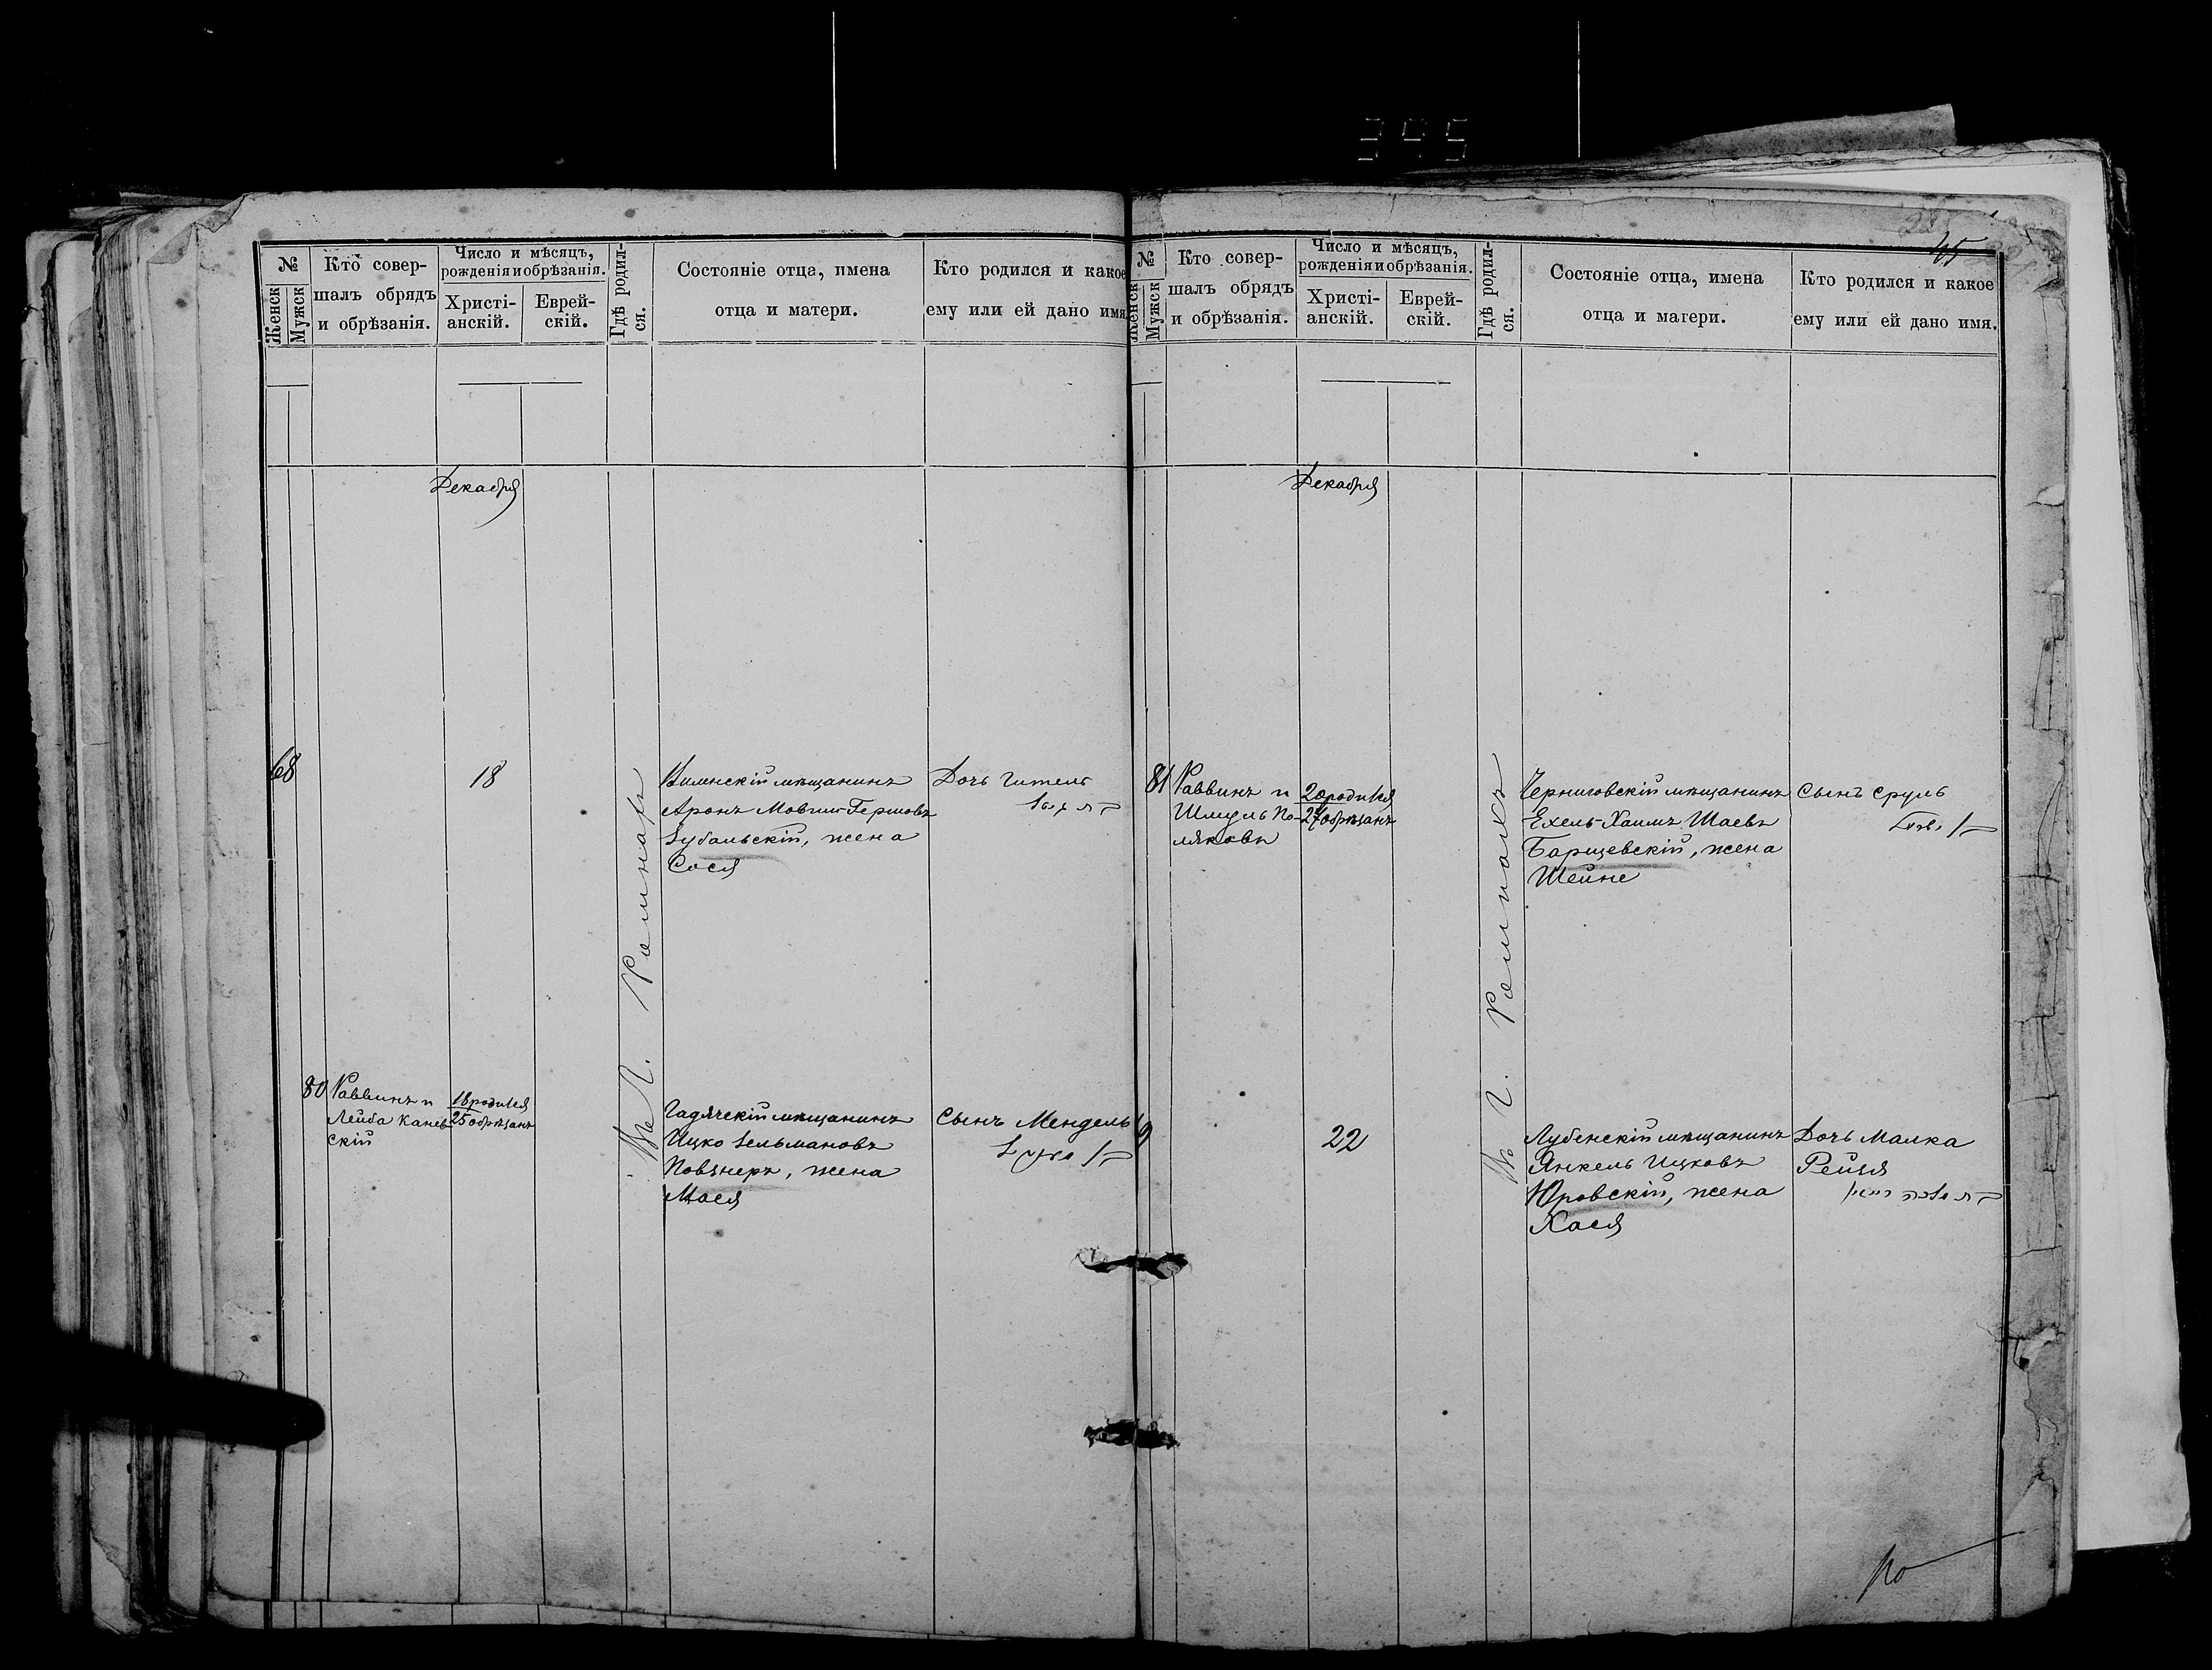 395
65
№
Женск
Мужск
Кто совер-
шалъ обрядъ
и обрѣзанія.
Число и мѣсяцъ,
рожденія и обрѣзанія.
Христі-
анскій.
Еврей-
скій.
Гдѣ родил-
ся.
Состояніе отца, имена
отца и матери.
Кто родился и какое
ему или ей дано имя.
Декабря
68
18
Виленскій мѣщанинъ
Аронъ Мовша Гершовъ
Зубальскій, жена
Сося
Дочь Гитель
80
Раввинъ и
Лейба Канев-
скій
18 родился
25 обрѣзанъ
Гадячскій мѣщанинъ
Ицко Зельмановъ
Повзнеръ, жена
Мася
Сынъ Мендель
№
Женск
Мужск
Кто совер-
шалъ обрядъ
и обрѣзанія.
Число и мѣсяцъ,
рожденія и обрѣзанія.
Христі-
анскій.
Еврей-
скій.
Гдѣ родил-
ся.
Состояніе отца, имена
отца и матери.
Кто родился и какое
ему или ей дано имя.
Декабря
81
Раввинъ и
Шмуль По-
ляковъ
20 родился
27 обрѣзанъ
Черниговскій мѣщанинъ
Ехель-Хаимъ Шаевъ
Барщевскій, жена
Шейне
Сынъ Сруль
22
Лубенскій мѣщанинъ
Янкель Ицковъ
Юровскій, жена
Хася
Дочь Малка
Рейзя